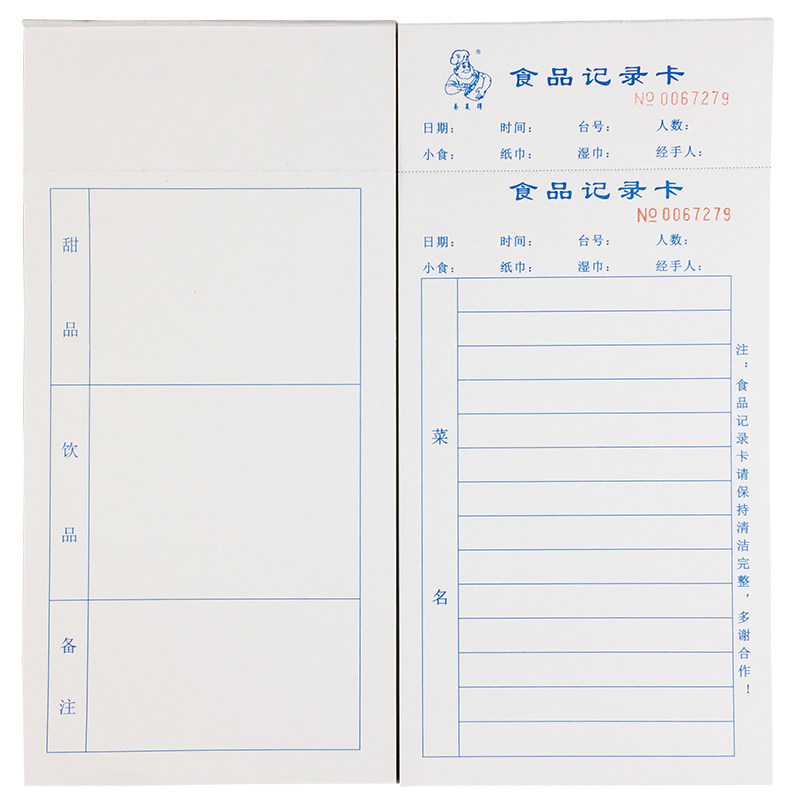 甜品
饮品
备注
®
易美得
食品记录卡
№ 0067279
日期： 时间： 台号： 人数：
小食： 纸巾： 湿巾： 经手人：
食品记录卡
№ 0067279
日期： 时间： 台号： 人数：
小食： 纸巾： 湿巾： 经手人：
菜名
注：食品记录卡请保持清洁完整，多谢合作！